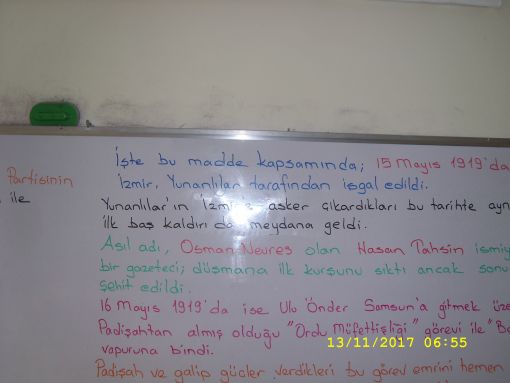 Partisinin
ile
İşte bu madde kapsamında; 15 Mayıs 1919'da
İzmir, Yunanlılar tarafından işgal edildi.
Yunanlılar'ın İzmir'e asker çıkardıkları bu tarihte ayn
ilk baş kaldırı da meydana geldi.
Asıl adı, Osman Nevres olan Hasan Tahsin ismiy
bir gazeteci; düşmana ilk kurşunu sıktı ancak sonu
şehit edildi.
16 Mayıs 1919'da ise Ulu Önder Samsun'a gitmek üze
Padişahtan almış olduğu "Ordu Müfettişliği" görevi ile "Ba
vapuruna bindi.
13/11/2017 06:55
Padişah ve galip güçler verdikleri bu görev emrini hemen